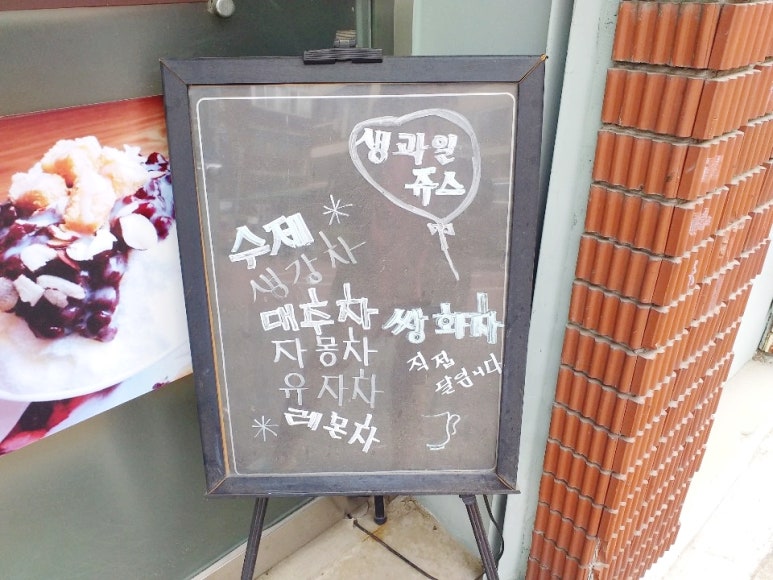 생과일
쥬스
수제
생강차
대추차
자몽차
유자차
레몬차
쌍화차
직접
달입니다